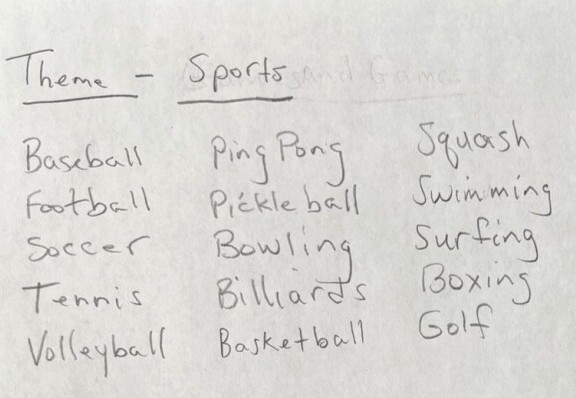 Theme - Sports and Games
Baseball
Football
Soccer
Tennis
Volleyball
Ping Pong
Pickleball
Bowling
Billiards
Basketball
Squash
Swimming
Surfing
Boxing
Golf